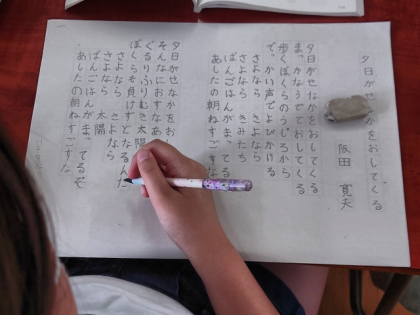 夕日がせなかをおしてくる
阪田 寛夫
夕日がせなかをおしてくる
まっかなうででおしてくる
歩くぼくらのうしろから
でっかい声でよびかける
さよなら さよなら
さよなら きみたち
ばんごはんがまってる
あしたの朝ねすごすな
夕日がせなかをお
そんなにおすなあ
ぐるりふりむき太陽
ぼくらも負けずどなるんだ
さよなら さよなら
さよなら 太陽
ばんごはんがまってるぞ
あしたの朝ねすごすな